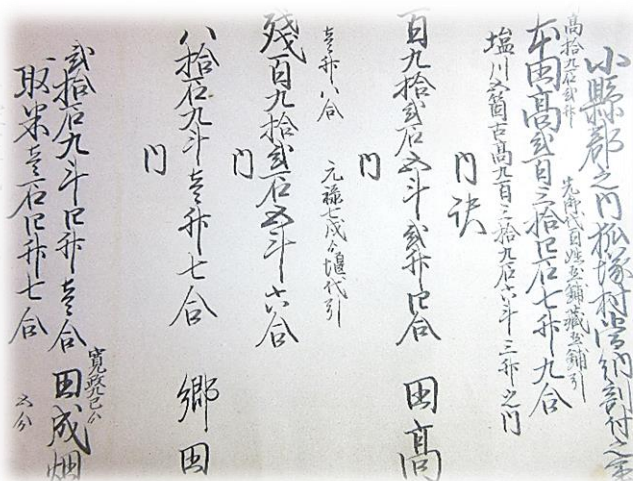 小縣郡之内狐塚村當納割付之事
高拾九石貳升 先御代官姓屋鋪蔵屋鋪引
本田高貳百三拾四石七升九合
塩川五箇古高九百三拾九石六斗三升之内
内訳
百九拾貳石五斗貳升四合 田高
内
壱升八合 元禄七戌ゟ堰代引
残百九拾貳石五斗六合
内
八拾石九斗壱升七合 郷田
内
貳拾石九斗四升壱合 寛政九巳ゟ 田成畑
取米壱石四升七合 五分